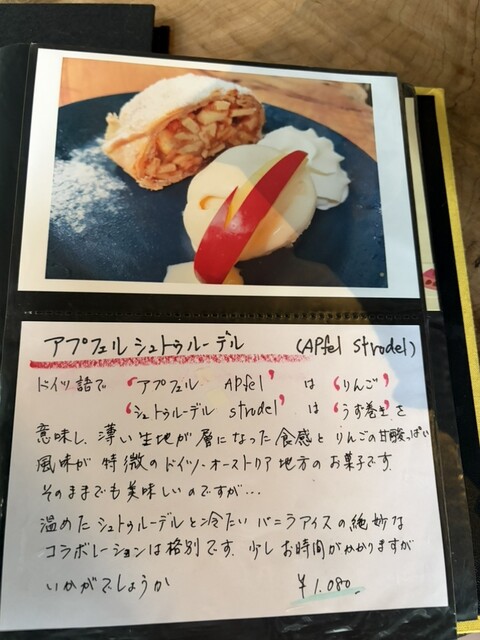 アプフェルシュトゥルーデル (APfel Strodel)
ドイツ語で 'アプフェル APfel' は 'りんご'
'シュトゥルーデル strodel' は 'うず巻き'を
意味し、薄い生地が層になった食感とりんごの甘酸っぱい
風味が特徴のドイツ・オーストリア地方のお菓子です。
そのままでも美味しいのですが…
温めたシュトゥルーデルと冷たいバニラアイスの絶妙な
コラボレーションは格別です。少しお時間がかかりますが
いかがでしょうか ¥1.080.